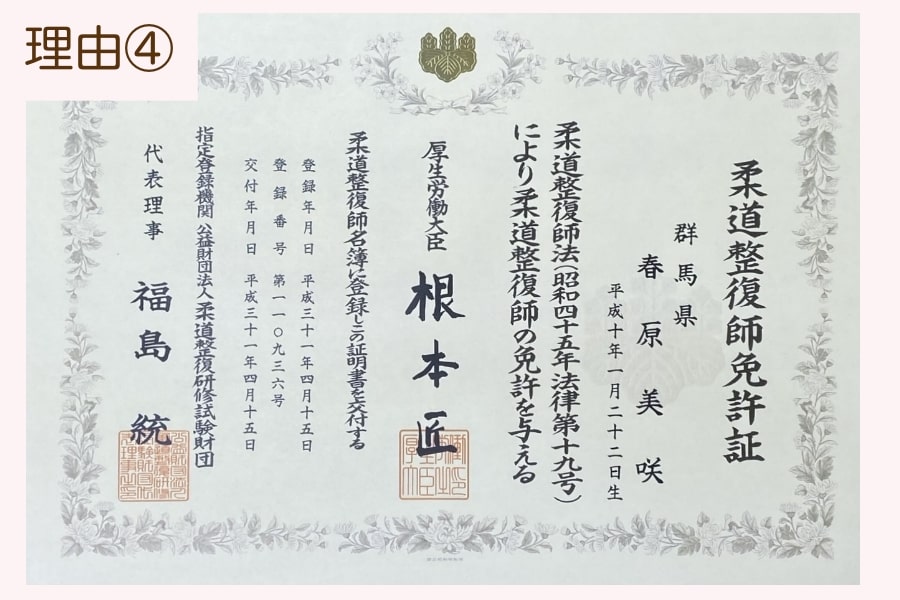 理由④
柔道整復師免許証
群馬県
春原美咲
平成十年一月二十二日生
柔道整復師法(昭和四十五年法律第十九号)
により柔道整復師の免許を与える
厚生労働大臣 根本匠
柔道整復師名簿に登録しこの証明書を交付する
登録年月日 平成三十一年四月十五日
登録番号 第一一〇九三六号
交付年月日 平成三十一年四月十五日
指定登録機関 公益財団法人柔道整復研修試験財団
代表理事 福島統